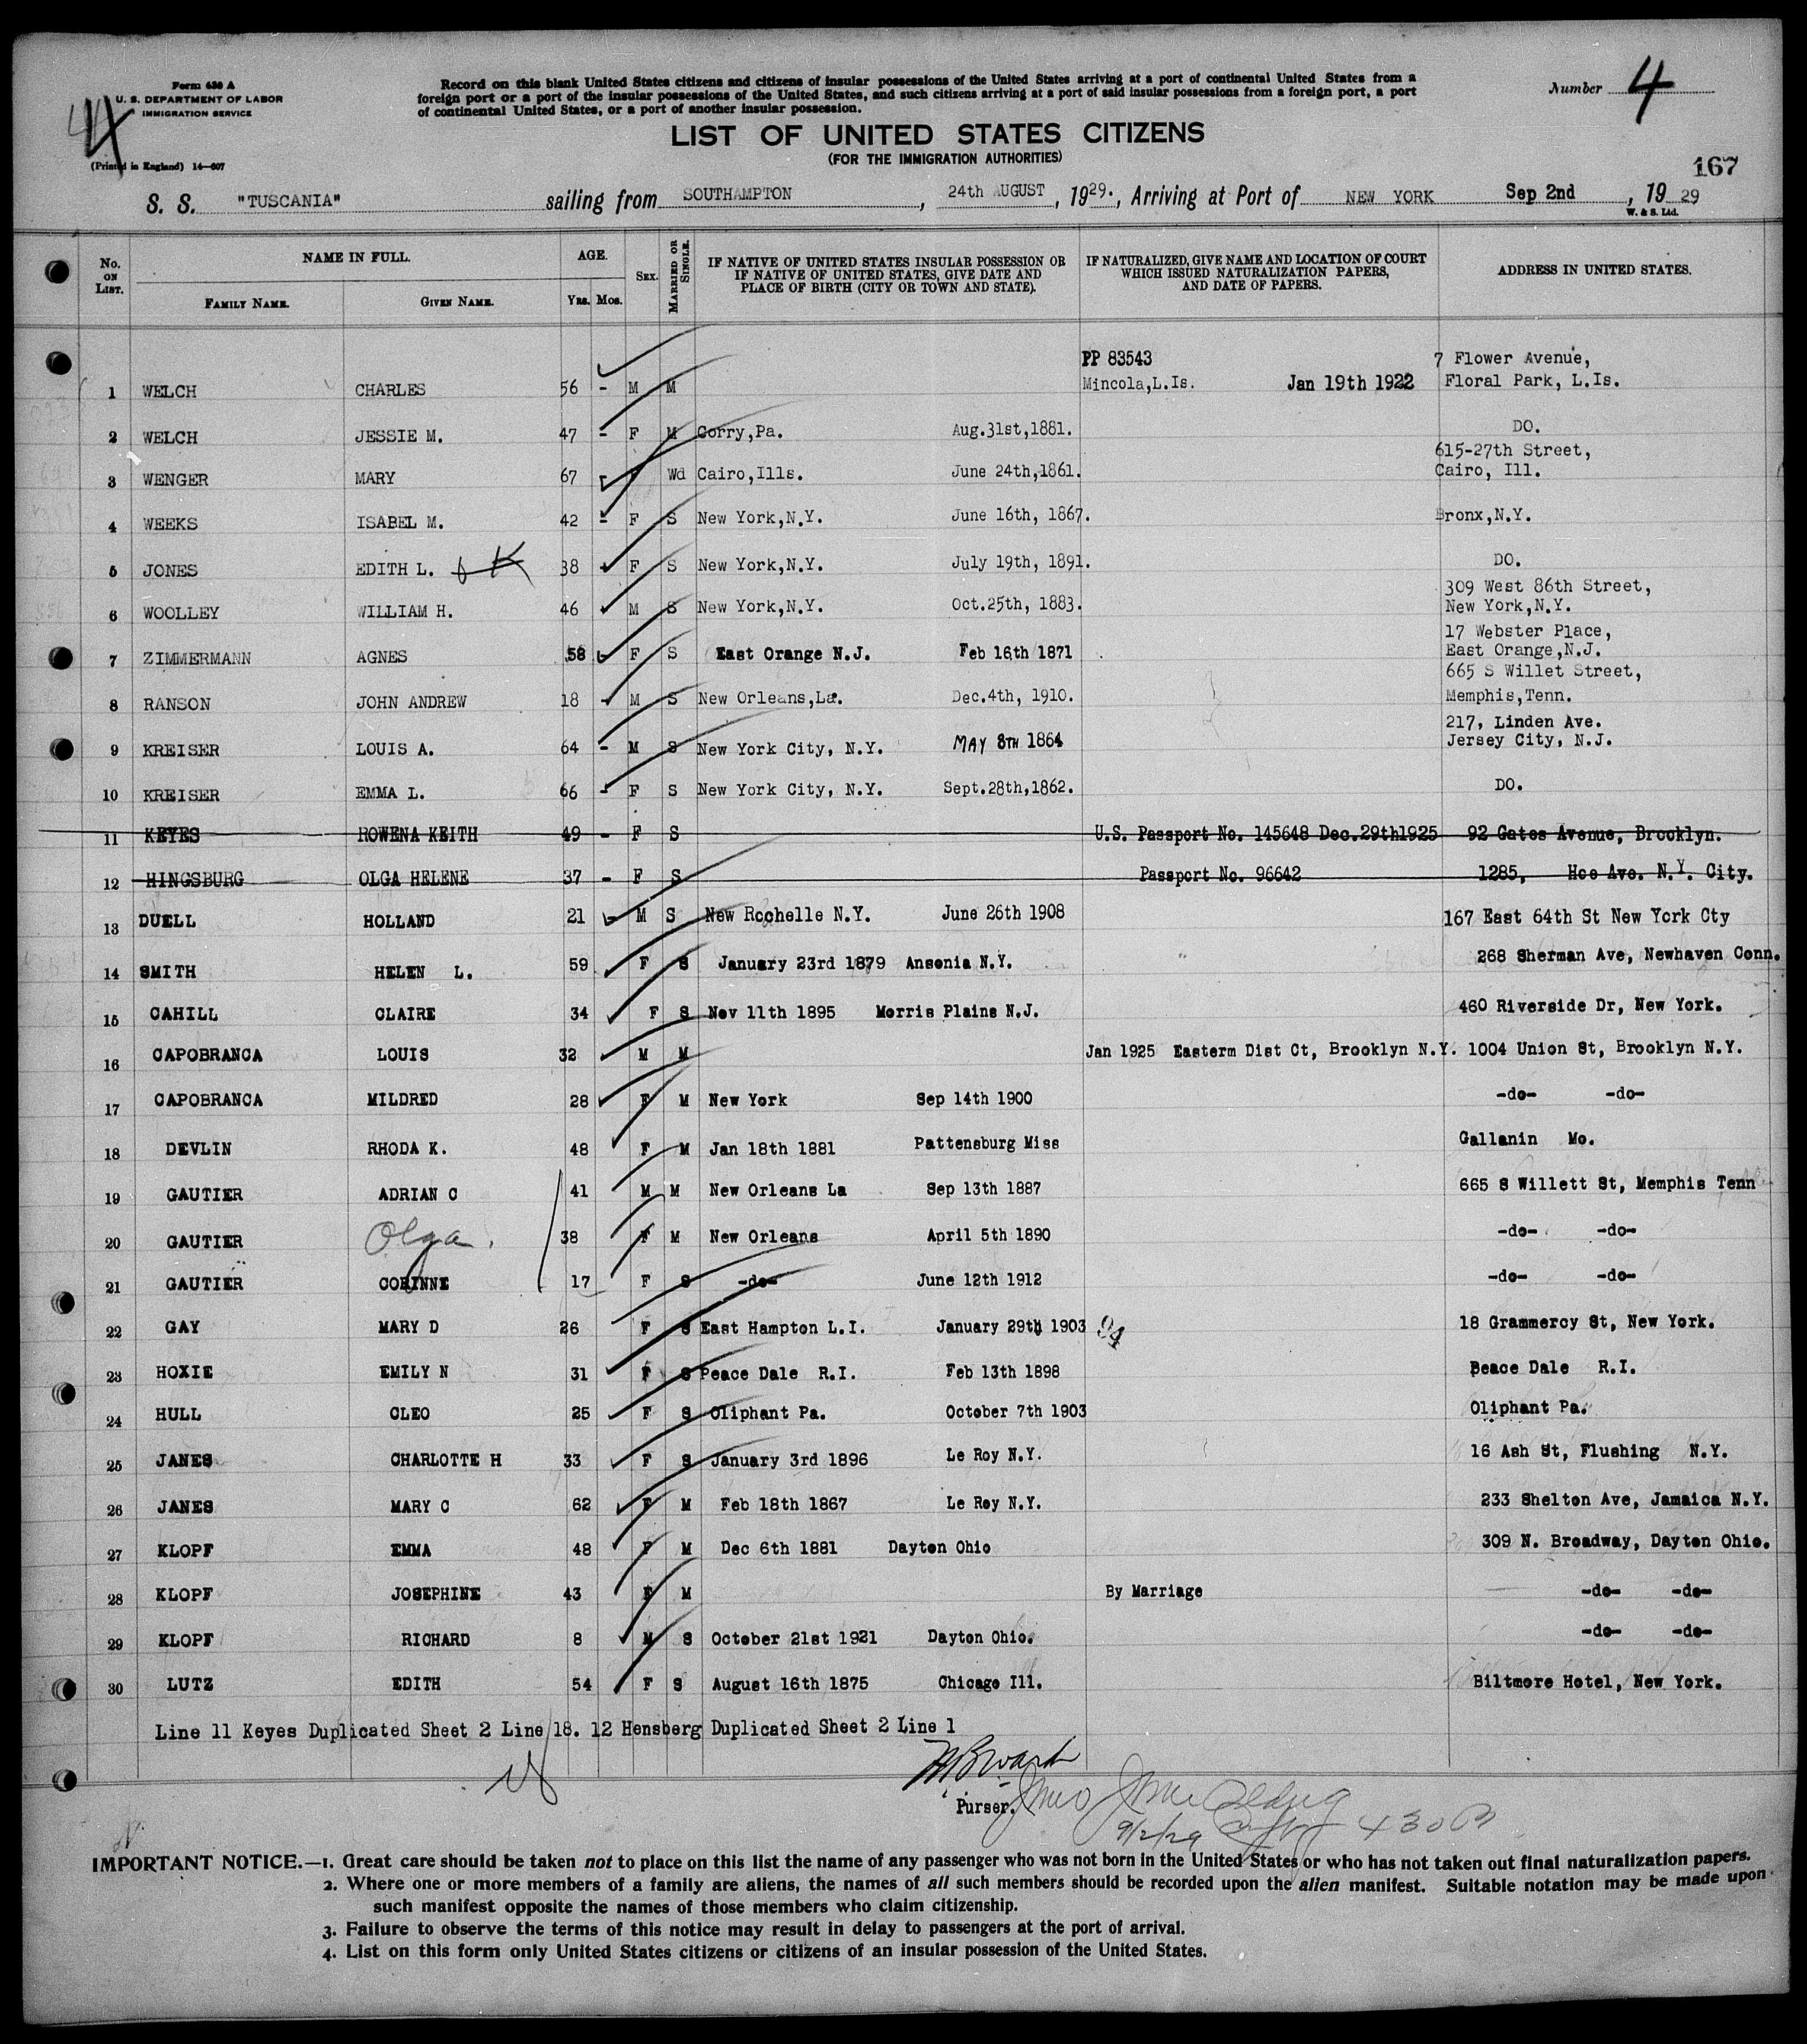 Form 630 A
U. S. DEPARTMENT OF LABOR
IMMIGRATION SERVICE
(Printed in England) 14—607
Record on this blank United States citizens and citizens of insular possessions of the United States arriving at a port of continental United States from a
foreign port or a port of the insular possessions of the United States, and such citizens arriving at a port of said insular possessions from a foreign port, a port
of continental United States, or a port of another insular possession.
Number 4
LIST OF UNITED STATES CITIZENS
(FOR THE IMMIGRATION AUTHORITIES)
167
S. S. "TUSCANIA" sailing from SOUTHAMPTON, 24th AUGUST, 1929., Arriving at Port of NEW YORK Sep 2nd, 1929
W. & S. Ltd.
No. ON LIST. NAME IN FULL. FAMILY NAME. GIVEN NAME. AGE. YRS. MOS. SEX. MARRIED OR SINGLE. IF NATIVE OF UNITED STATES INSULAR POSSESSION OR IF NATIVE OF UNITED STATES, GIVE DATE AND PLACE OF BIRTH (CITY OR TOWN AND STATE). IF NATURALIZED, GIVE NAME AND LOCATION OF COURT WHICH ISSUED NATURALIZATION PAPERS, AND DATE OF PAPERS. ADDRESS IN UNITED STATES.
PP 83543 7 Flower Avenue,
1 WELCH CHARLES 56 - M M Mincola,L.Is. Jan 19th 1922 Floral Park, L.Is.
2 WELCH JESSIE M. 47 - F M Corry,Pa. Aug.31st,1881. DO.
615-27th Street,
3 WENGER MARY 67 - Wd Cairo,Ills. June 24th,1861. Cairo, Ill.
4 WEEKS ISABEL M. 42 - F S New York,N.Y. June 16th, 1867. Bronx,N.Y.
5 JONES EDITH L. 38 F S New York,N.Y. July 19th, 1891. DO.
309 West 86th Street,
6 WOOLLEY WILLIAM H. 46 M S New York,N.Y. Oct.25th, 1883. New York,N.Y.
17 Webster Place,
7 ZIMMERMANN AGNES 58 F S East Orange N.J. Feb 16th 1871 East Orange,N.J.
665 S Willet Street,
8 RANSON JOHN ANDREW 18 M S New Orleans,La. Dec.4th, 1910. Memphis,Tenn.
217, Linden Ave.
9 KREISER LOUIS A. 64 - M S New York City, N.Y. MAY 8TH 1864 Jersey City, N.J.
10 KREISER EMMA L. 66 - F S New York City, N.Y. Sept.28th,1862. DO.
11 KEYES ROWENA KEITH 49 - F S U.S. Passport No. 145648 Dec.29th1925 92 Gates Avenue, Brooklyn.
12 HINGSBURG OLGA HELENE 37 - F S Passport No. 96642 1285, Hoe Ave. N.Y. City.
13 DUELL HOLLAND 21 M S New Rochelle N.Y. June 26th 1908 167 East 64th St New York Cty
14 SMITH HELEN L. 59 F S January 23rd 1879 Ansonia N.Y. 268 Sherman Ave, Newhaven Conn.
15 CAHILL CLAIRE 34 F S Nov 11th 1895 Morris Plains N.J. 460 Riverside Dr, New York.
16 CAPOBRANCA LOUIS 32 M M Jan 1925 Easterm Dist Ct, Brooklyn N.Y. 1004 Union St, Brooklyn N.Y.
17 CAPOBRANCA MILDRED 28 F M New York Sep 14th 1900 -do- -do-
18 DEVLIN RHODA K. 48 F M Jan 18th 1881 Pattensburg Miss Gallanin Mo.
19 GAUTIER ADRIAN C 41 M M New Orleans La Sep 13th 1887 665 S Willett St, Memphis Tenn
20 GAUTIER Olga. 38 F M New Orleans April 5th 1890 -do- -do-
21 GAUTIER CORINNE 17 F S -do- June 12th 1912 -do- -do-
22 GAY MARY D 26 F S East Hampton L.I. January 29th 1903 94 18 Grammercy St, New York.
23 HOXIE EMILY N 31 F S Peace Dale R.I. Feb 13th 1898 Peace Dale R.I.
24 HULL CLEO 25 F S Oliphant Pa. October 7th 1903 Oliphant Pa.
25 JANES CHARLOTTE H 33 F S January 3rd 1896 Le Roy N.Y. 16 Ash St, Flushing N.Y.
26 JANES MARY C 62 F M Feb 18th 1867 Le Roy N.Y. 233 Shelton Ave, Jamaica N.Y.
27 KLOPF EMMA 48 F M Dec 6th 1881 Dayton Ohio 309 N. Broadway, Dayton Ohio.
28 KLOPF JOSEPHINE 43 F M By Marriage -do- -do-
29 KLOPF RICHARD 8 M S October 21st 1921 Dayton Ohio. -do- -do-
30 LUTZ EDITH 54 F S August 16th 1875 Chicago Ill. Biltmore Hotel, New York.
Line 11 Keyes Duplicated Sheet 2 Line 18. 12 Hensberg Duplicated Sheet 2 Line 1
Purser.
9/2/29 430
IMPORTANT NOTICE.—1. Great care should be taken not to place on this list the name of any passenger who was not born in the United States or who has not taken out final naturalization papers.
2. Where one or more members of a family are aliens, the names of all such members should be recorded upon the alien manifest. Suitable notation may be made upon
such manifest opposite the names of those members who claim citizenship.
3. Failure to observe the terms of this notice may result in delay to passengers at the port of arrival.
4. List on this form only United States citizens or citizens of an insular possession of the United States.